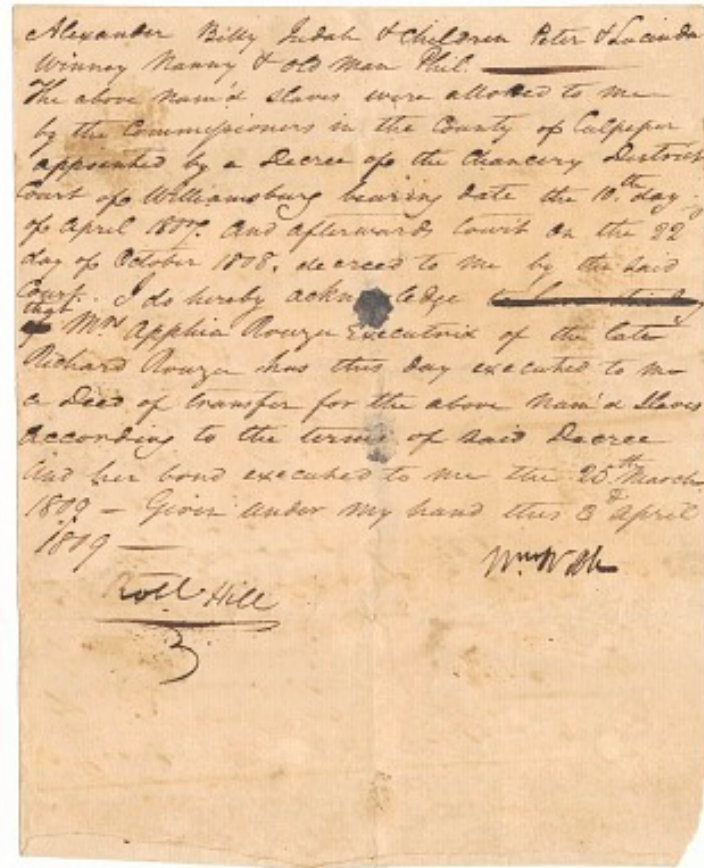 Alexander Billy Judah & Children Peter & Lucinda
Winney Nanny & old man Phil.
The above Nam'd slaves were allotted to me
by the Commissioners in the County of Culpeper
appointed by a Decree of the Chancery District
Court of Williamsburg bearing date the 10th day
of April 1807. And afterwards Court on the 22
day of October 1808. decreed to me by the said
Court. I do hereby acknowledge
that Mrs Apphia Rouzee Executrix of the late
Richard Rouzee has this day executed to me
a Deed of transfer for the above Nam'd Slaves
According to the terms of said Decree
And her bond executed to me the 25th March
1809 - Given under my hand this 3d April
1809
Wm
Robt Hill